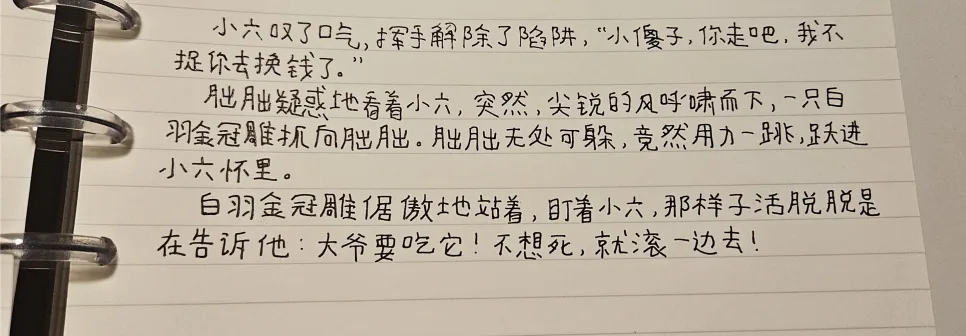 小六叹了口气，挥手解除了陷阱，“小傻子，你走吧，我不
捉你去换钱了。”
朏朏疑惑地看着小六，突然，尖锐的风呼啸而下，一只白
羽金冠雕抓向朏朏。朏朏无处可躲，竟然用力一跳，跃进
小六怀里。
白羽金冠雕倨傲地站着，盯着小六，那样子活脱脱是
在告诉他：大爷要吃它！不想死，就滚一边去！